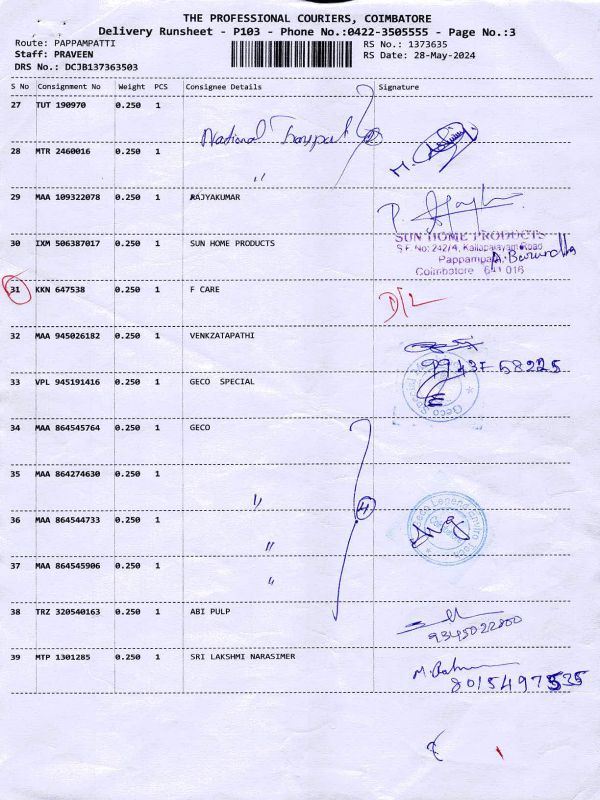 THE PROFESSIONAL COURIERS, COIMBATORE
Delivery Runsheet - P103 - Phone No.:0422-3505555 - Page No.:3
Route: PAPPAMPATTI RS No.: 1373635
Staff: PRAVEEN RS Date: 28-May-2024
DRS No.: DCJB137363503
S No Consignment No Weight PCS Consignee Details Signature
27 TUT 190970 0.250 1
National Transport
28 MTR 2460016 0.250 1 "
29 MAA 109322078 0.250 1 RAJYAKUMAR
30 IXM 506387017 0.250 1 SUN HOME PRODUCTS
SUN HOME PRODUCTS
S.F. No: 242/4, Kallapalayam Road
Pappampatti
Coimbatore 641 016
31 KKN 647538 0.250 1 F CARE D/L
32 MAA 945026182 0.250 1 VENKZATAPATHI
99437 68225
33 VPL 945191416 0.250 1 GECO SPECIAL
34 MAA 864545764 0.250 1 GECO
35 MAA 864274630 0.250 1 "
4
36 MAA 864544733 0.250 1 "
37 MAA 864545906 0.250 1 "
38 TRZ 320540163 0.250 1 ABI PULP
9345022800
39 MTP 1301285 0.250 1 SRI LAKSHMI NARASIMER
8015497535